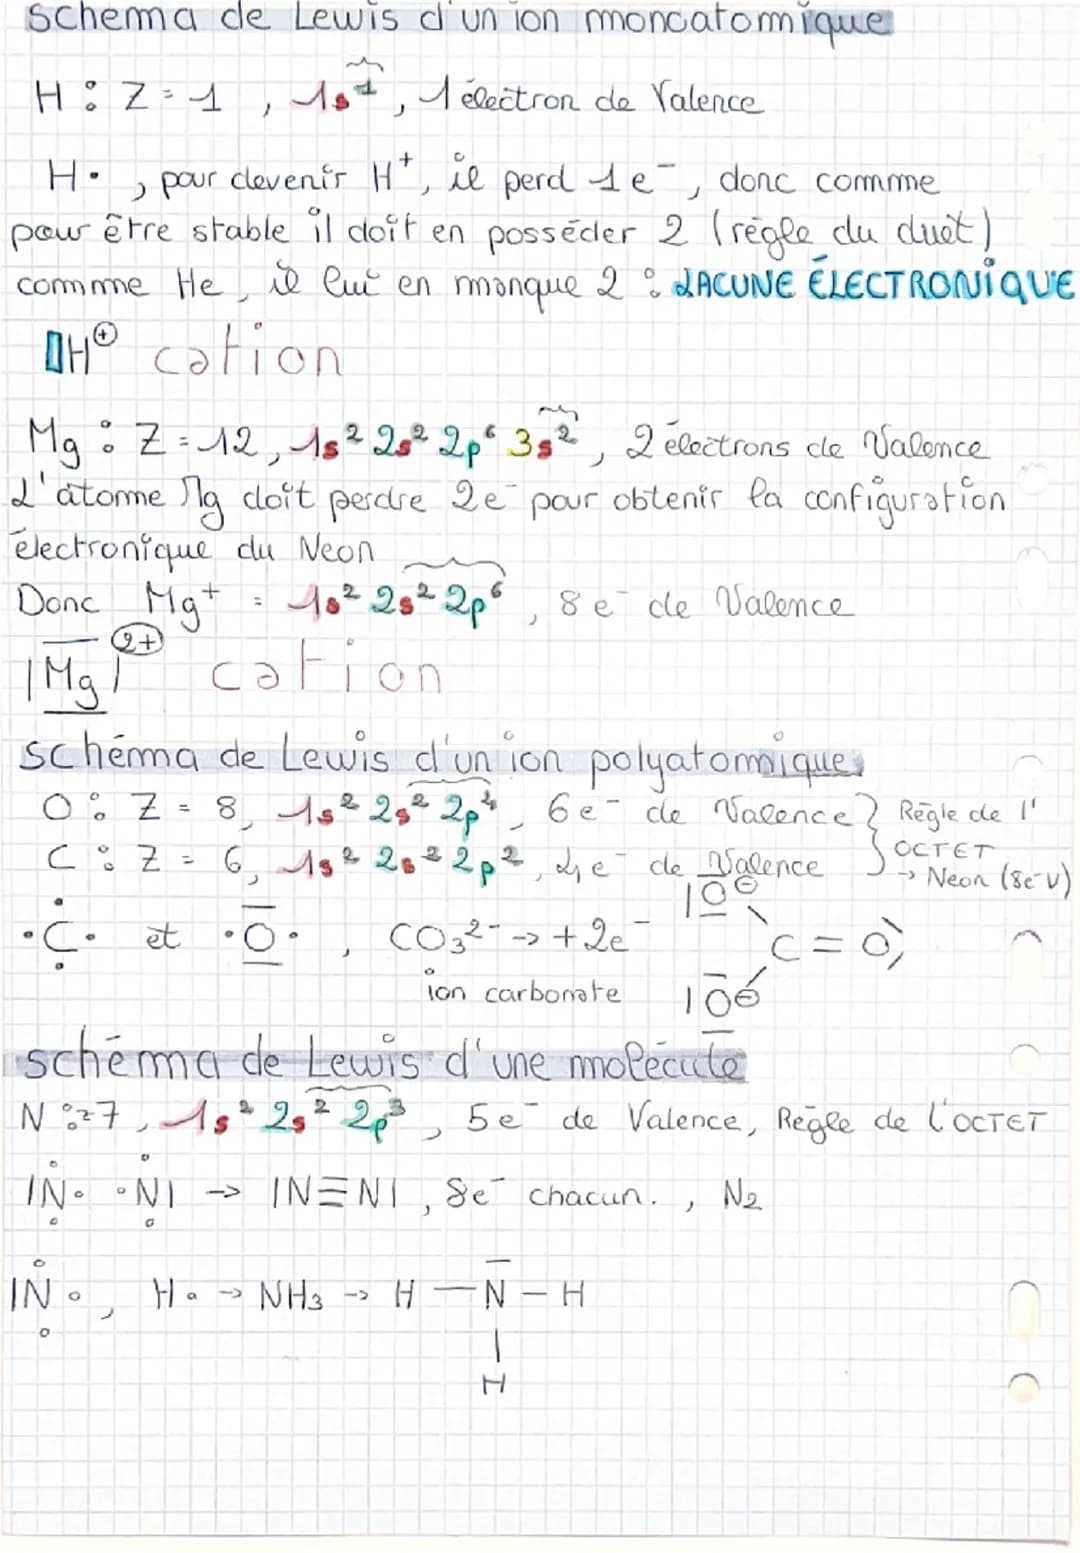 schema de Lewis d'un ion monoatomique
H : Z = 1 , 1s¹ , 1 électron de Valence
H• , pour devenir H⁺, il perd 1e⁻, donc comme
pour être stable il doit en posséder 2 (règle du duet)
comme He , il lui en manque 2 : LACUNE ÉLECTRONIQUE
▯H⊕ cation
Mg : Z = 12, 1s² 2s² 2p⁶ 3s² , 2 électrons de Valence
L'atome Mg doit perdre 2e⁻ pour obtenir la configuration
électronique du Neon
Donc Mg⁺ = 1s² 2s² 2p⁶ , 8e⁻ de Valence
|Mg| 2+ cation
schéma de Lewis d'un ion polyatomique
O : Z = 8, 1s² 2s² 2p⁴, 6e⁻ de Valence } Règle de l'
C : Z = 6, 1s² 2s² 2p², 4e⁻ de Valence OCTET
→ Neon (8e⁻ v)
•C• et •O• , CO₃²⁻ -> +2e⁻ |O⊖ C = O |O⊖
ion carbonate
schéma de Lewis d'une molécule
N : z 7, 1s² 2s² 2p³ , 5e⁻ de Valence, Règle de l'OCTET
|N• •N| -> |N≡N| , 8e⁻ chacun. , N₂
|N• , H• -> NH₃ -> H — N — H
|
H